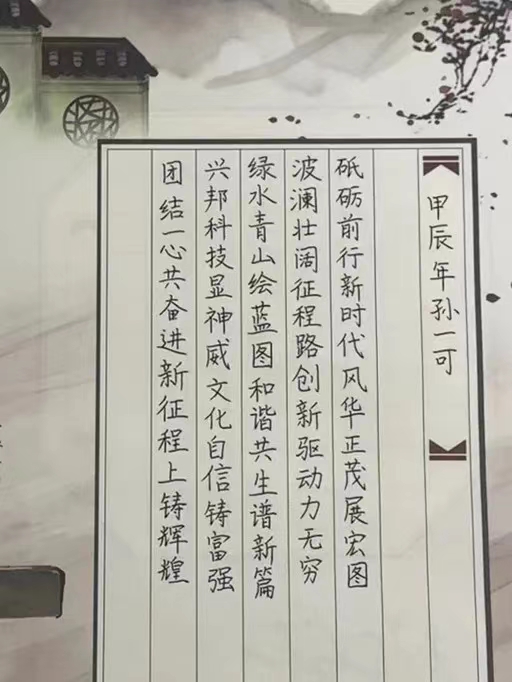 甲辰年孙一可
砥砺前行新时代风华正茂展宏图
波澜壮阔征程路创新驱动力无穷
绿水青山绘蓝图和谐共生谱新篇
兴邦科技显神威文化自信铸富强
团结一心共奋进新征程上铸辉煌